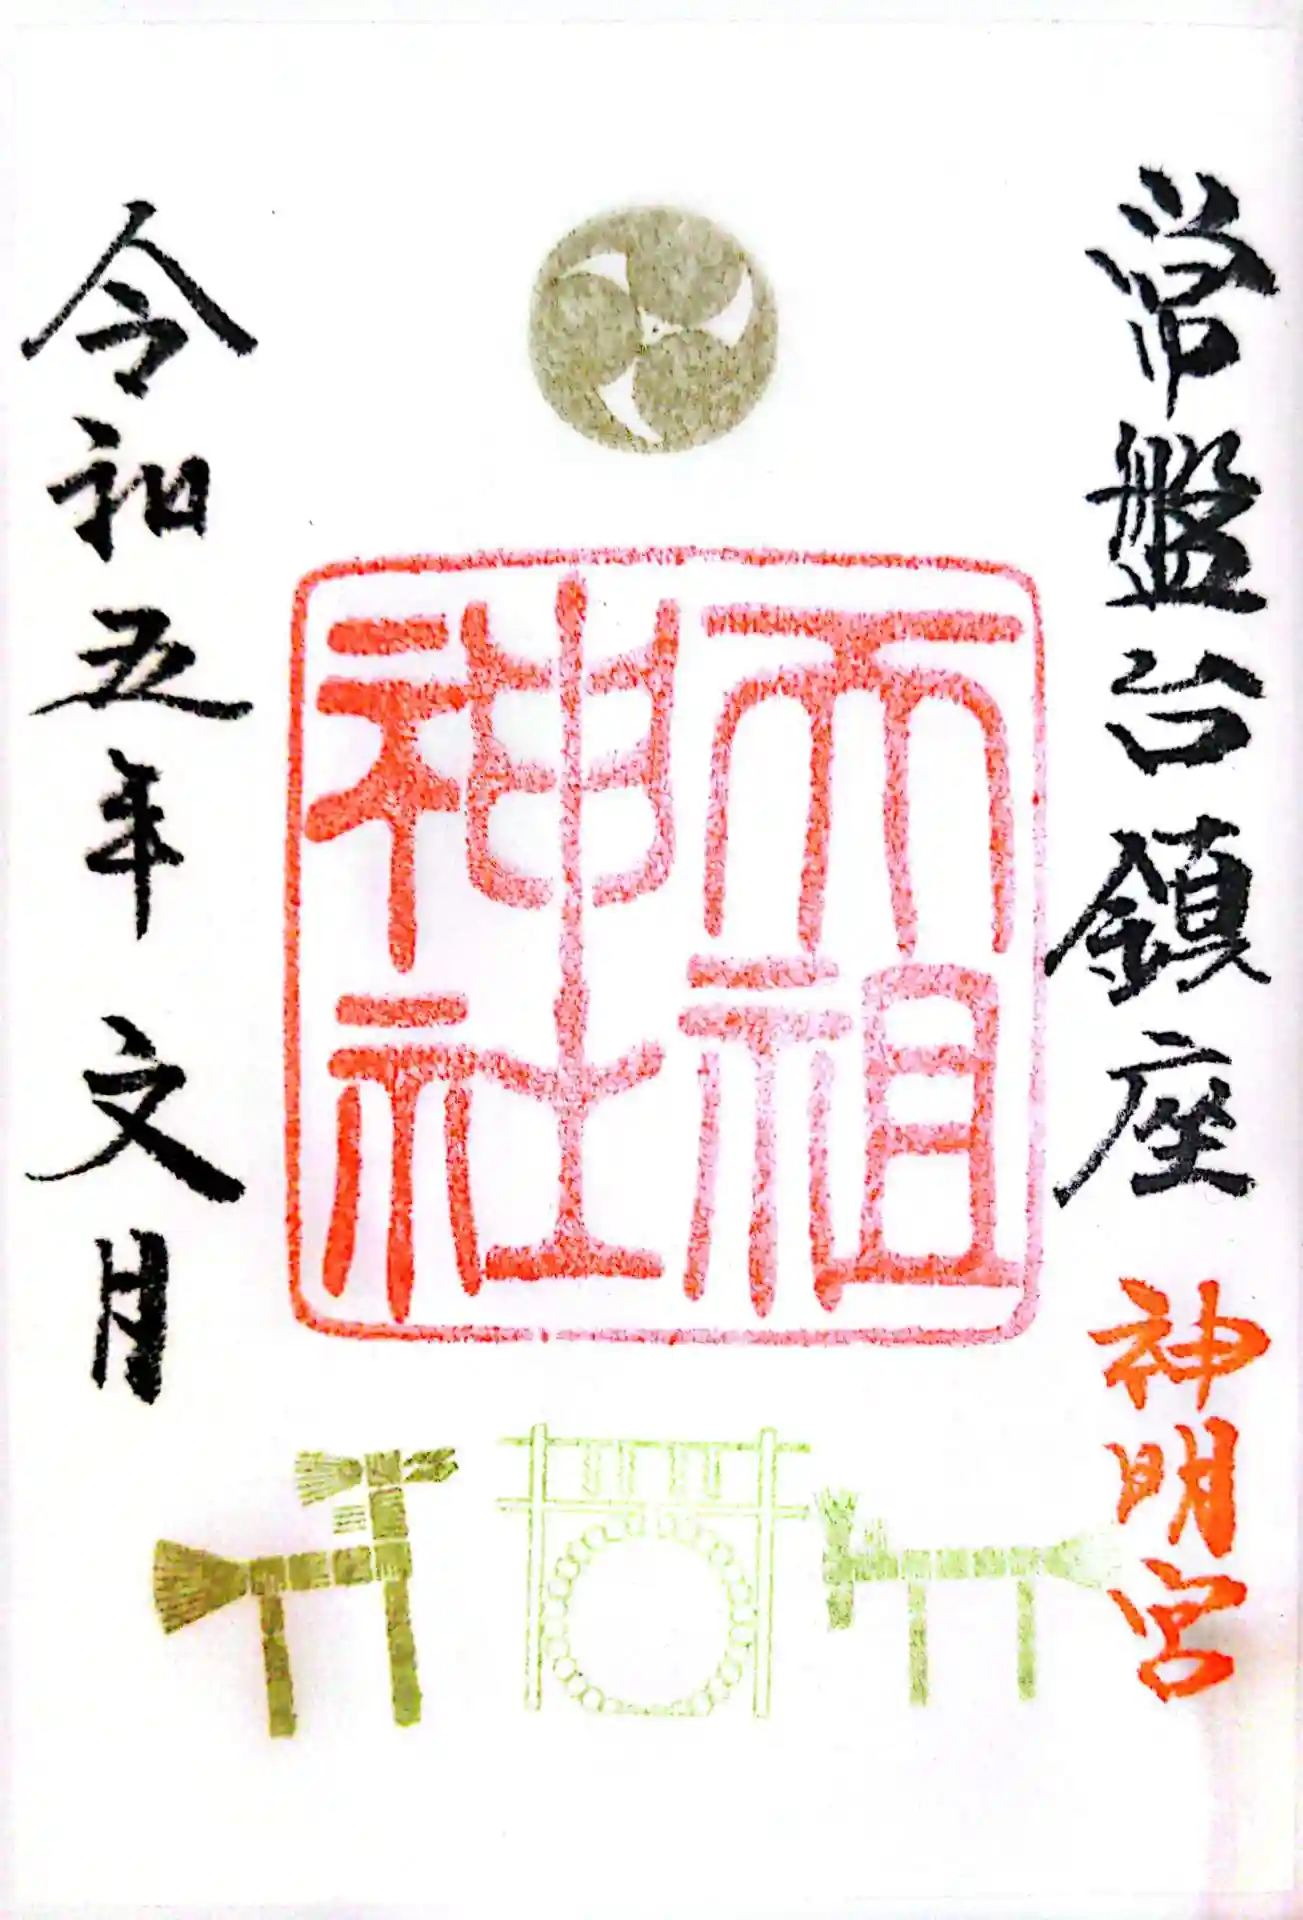 常盤台鎮座 神明宮
天祖
神社
令和五年 文月